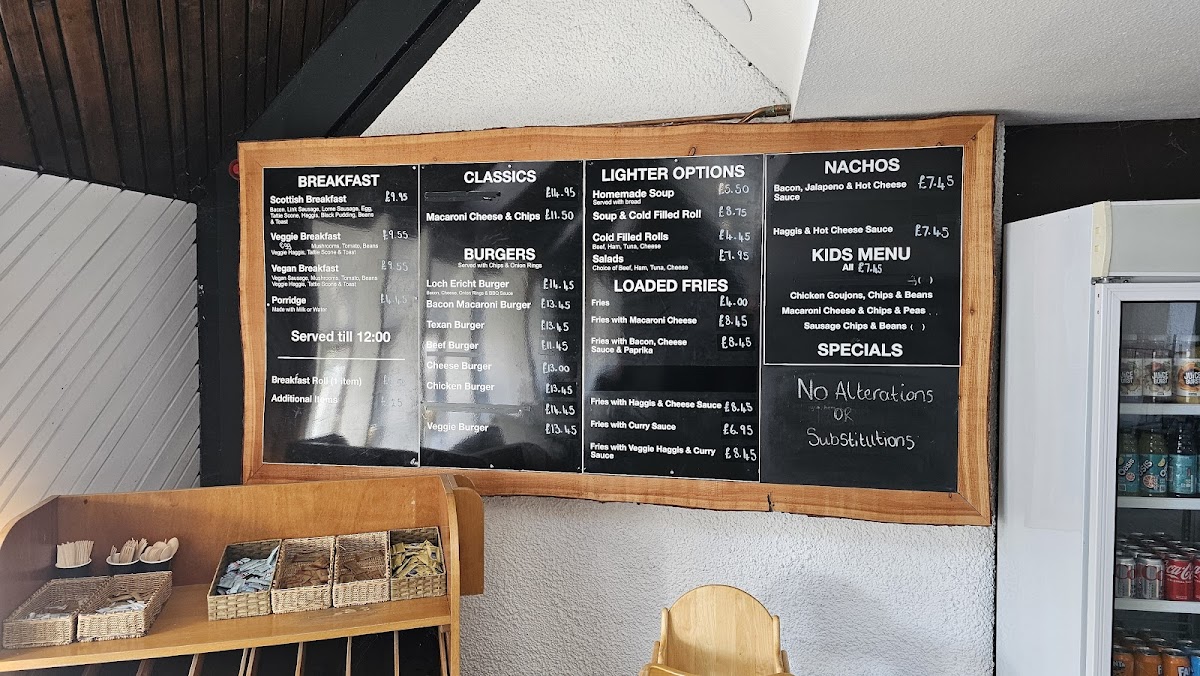 BREAKFAST
Scottish Breakfast £9.95
Bacon, Link Sausage, Lorne Sausage, Egg,
Tattie Scone, Haggis, Black Pudding, Beans
& Toast
Veggie Breakfast £9.55
Egg Mushrooms, Tomato, Beans
Veggie Haggis, Tattie Scone & Toast
Vegan Breakfast £9.55
Vegan Sausage, Mushrooms, Tomato, Beans
Veggie Haggis, Tattie Scone & Toast
Porridge
Made with Milk or Water
Served till 12:00
Breakfast Roll (1 item)
Additional Items
CLASSICS
£14.95
Macaroni Cheese & Chips £11.50
BURGERS
Served with Chips & Onion Rings
Loch Ericht Burger £14.45
Bacon, Cheese, Onion Rings & BBQ Sauce
Bacon Macaroni Burger £13.45
Texan Burger £13.45
Beef Burger £11.45
Cheese Burger £13.00
Chicken Burger £13.45
£14.45
Veggie Burger £13.45
LIGHTER OPTIONS
Homemade Soup £5.50
Served with bread
Soup & Cold Filled Roll £8.75
Cold Filled Rolls £4.45
Beef, Ham, Tuna, Cheese
Salads £7.95
Choice of Beef, Ham, Tuna, Cheese
LOADED FRIES
Fries £4.00
Fries with Macaroni Cheese £8.45
Fries with Bacon, Cheese £8.45
Sauce & Paprika
Fries with Haggis & Cheese Sauce £8.45
Fries with Curry Sauce £6.95
Fries with Veggie Haggis & Curry £8.45
Sauce
NACHOS
Bacon, Jalapeno & Hot Cheese £7.45
Sauce
Haggis & Hot Cheese Sauce £7.45
KIDS MENU
All £7.45
Chicken Goujons, Chips & Beans
Macaroni Cheese & Chips & Peas
Sausage Chips & Beans ( )
SPECIALS
No Alterations
OR
Substitutions